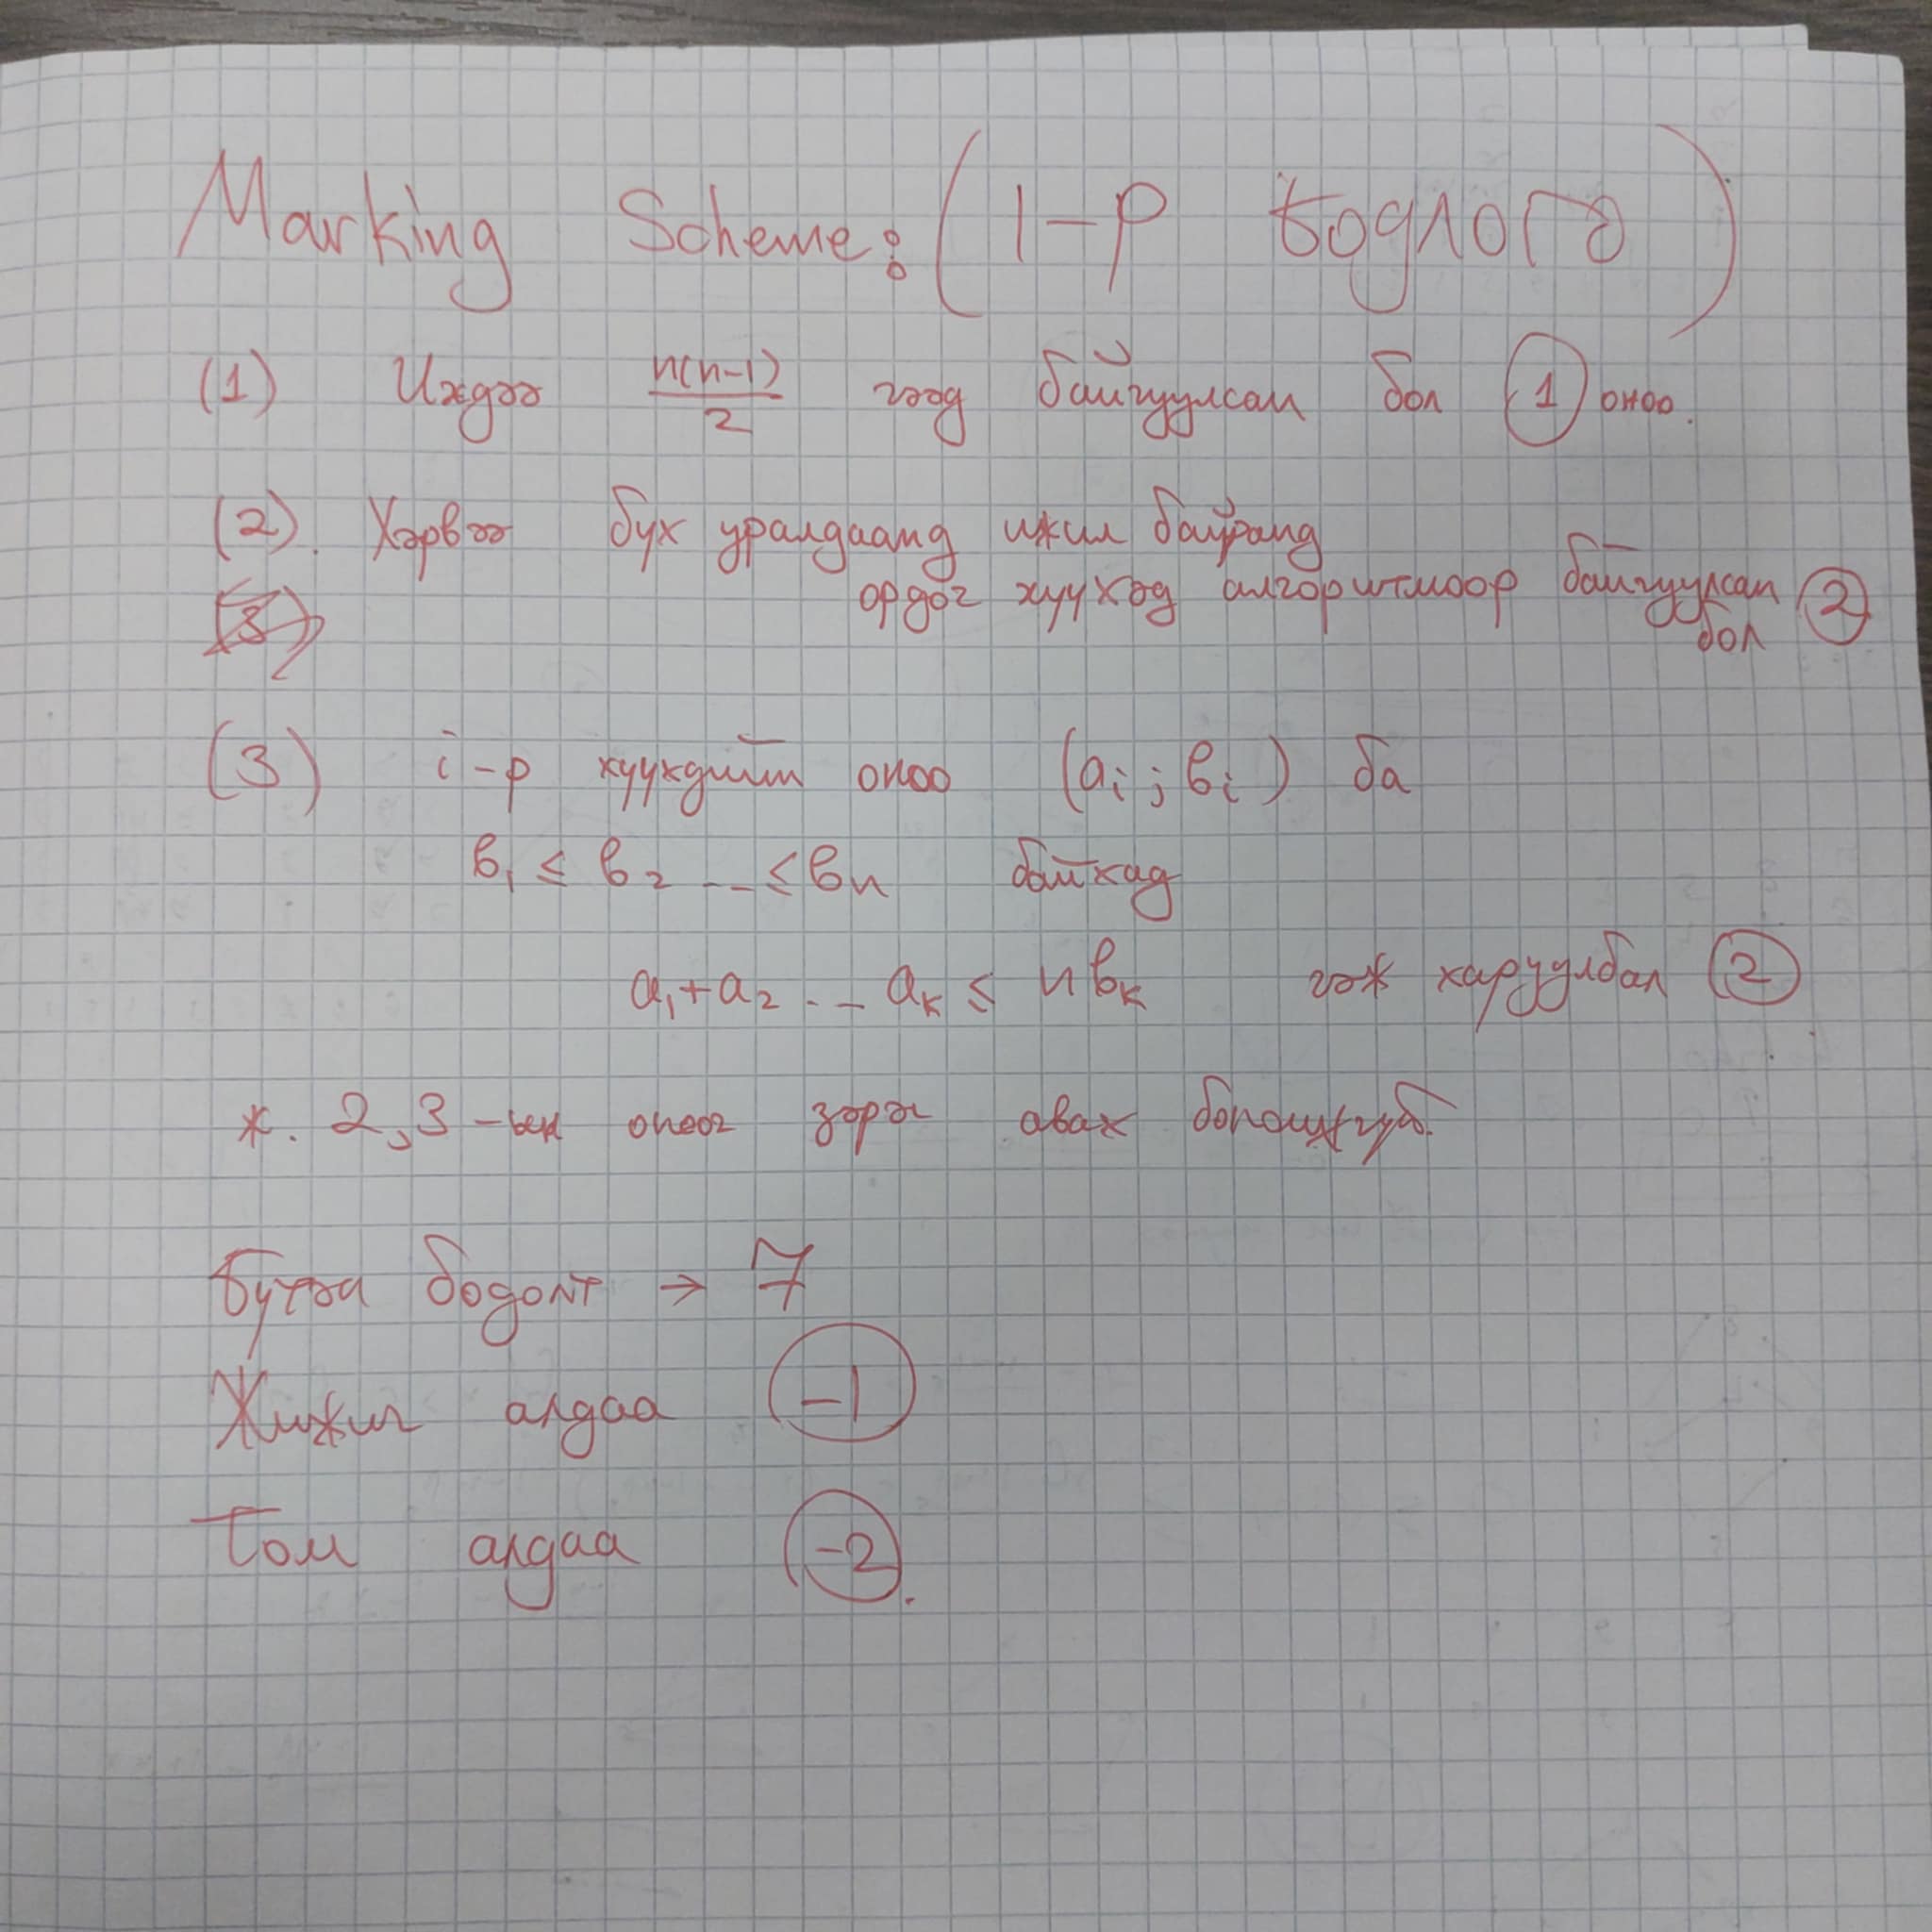 Marking Scheme: (1-р бодлого)
(1) Ихдээ n(n-1)/2 гээд байгуулсан бол 1 оноо.
(2). Хэрвээ бүх уралдаанд ижил байранд
ордог хүүхэд алгоритмоор байгуулсан 2
бол
(3) i-р хүүхдийн оноо (aᵢ; bᵢ) ба
b₁ ≤ b₂ ... ≤ bₙ байхад
a₁+a₂ ... aₖ ≤ n bₖ гэж харуулбал 2
*. 2,3-ын оноог зэрэг авах боломжгүй.
Бүтэн бодолт → 7
Жижиг алдаа -1
Том алдаа -2.